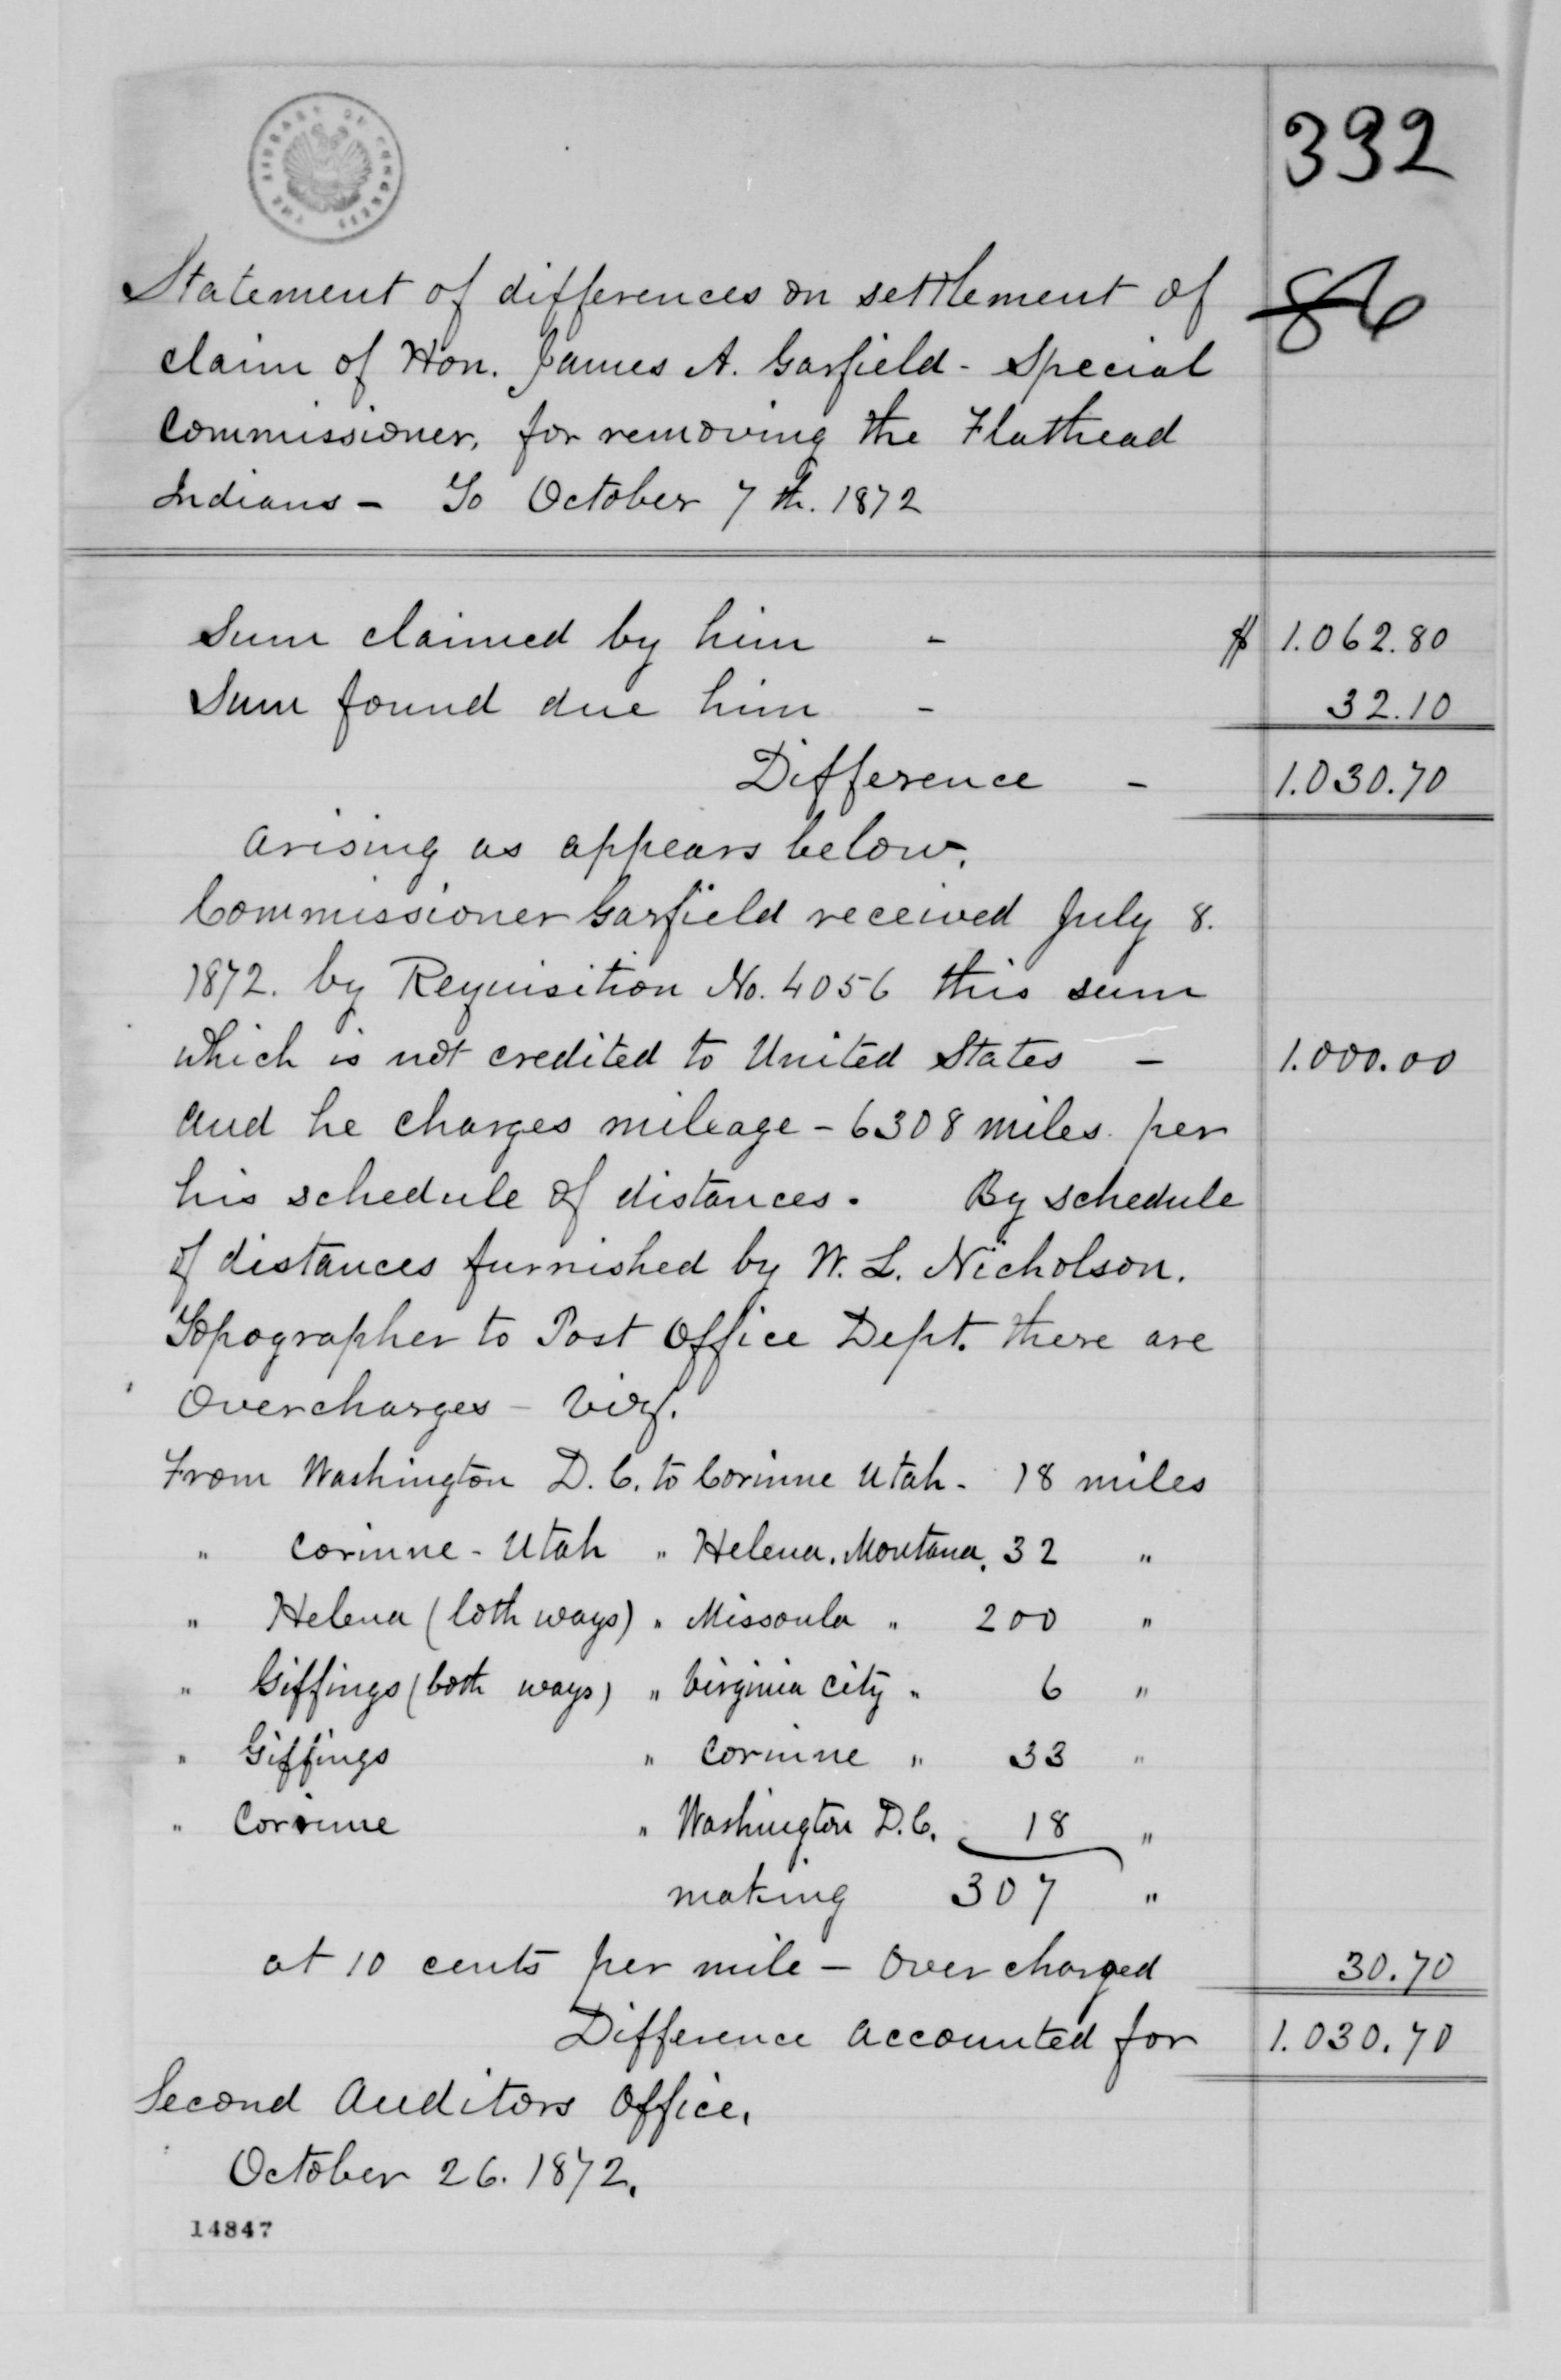 THE LIBRARY OF CONGRESS
332
86
Statement of differences on settlement of
claim of Hon. James A. Garfield - Special
Commissioner, for removing the Flathead
Indians - To October 7th. 1872
Sum claimed by him - $ 1.062.80
Sum found due him - 32.10
Difference - 1.030.70
arising as appears below.
Commissioner Garfield received July 8.
1872. by Requisition No. 4056 this sum
which is not credited to United States - 1.000.00
and he charges mileage - 6308 miles per
his schedule of distances. By schedule
of distances furnished by W. L. Nicholson.
Topographer to Post Office Dept. there are
overcharges - viz.
From Washington D.C. to Corinne Utah - 18 miles
" Corinne - Utah " Helena, Montana, 32 "
" Helena (both ways) " Missoula " 200 "
" Giffings (both ways) " Virginia City " 6 "
" Giffings " Corinne " 33 "
" Corinne " Washington D.C. 18 "
making 307 "
at 10 cents per mile - Over charged 30.70
Difference accounted for 1.030.70
Second Auditors Office,
October 26. 1872.
14847